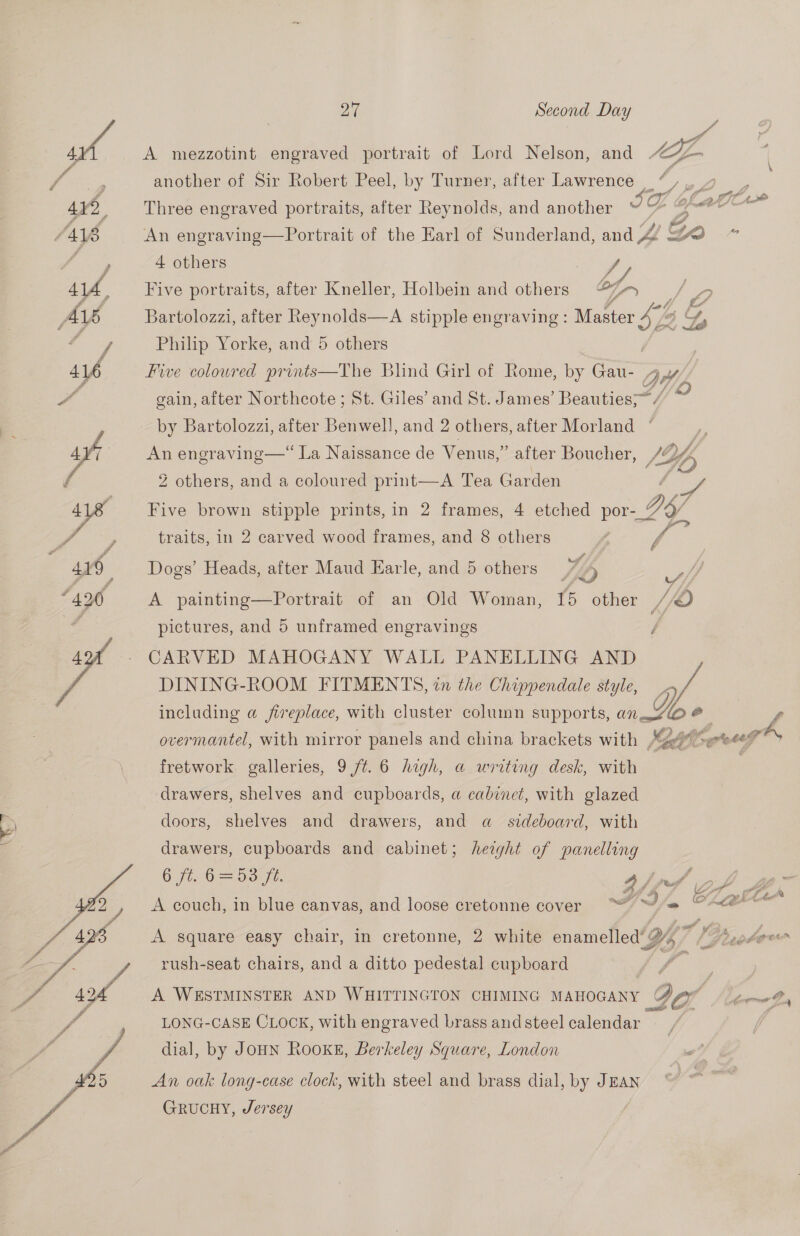 27 Second Day
411 A mezzotint engraved portrait of Lord Nelson, and
another of Sir Robert Peel, by Turner, after Lawrence
412 Three engraved portraits, after Reynolds, and another
413 An engraving—Portrait of the Earl of Sunderland, and
4 others
414 Five portraits, after Kneller, Holbein and others
415 Bartolozzi, after Reynolds—A stipple engraving: Master
Philip Yorke, and 5 others
416 Five coloured prints—The Blind Girl of Rome, by Gau-
gain, after Northcote; St. Giles' and St. James' Beauties,
by Bartolozzi, after Benwell, and 2 others, after Morland
417 An engraving—“La Naissance de Venus,” after Boucher,
2 others, and a coloured print—A Tea Garden
418 Five brown stipple prints, in 2 frames, 4 etched por-
traits, in 2 carved wood frames, and 8 others
419 Dogs' Heads, after Maud Earle, and 5 others
420 A painting—Portrait of an Old Woman, 15 other
pictures, and 5 unframed engravings
421 CARVED MAHOGANY WALL PANELLING AND
DINING-ROOM FITMENTS, in the Chippendale style,
including a fireplace, with cluster column supports, an
overmantel, with mirror panels and china brackets with
fretwork galleries, 9 ft. 6 high, a writing desk, with
drawers, shelves and cupboards, a cabinet, with glazed
doors, shelves and drawers, and a sideboard, with
drawers, cupboards and cabinet; height of panelling
6 ft. 6 = 53 ft.
422 A couch, in blue canvas, and loose cretonne cover
423 A square easy chair, in cretonne, 2 white enamelled
rush-seat chairs, and a ditto pedestal cupboard
424 A WESTMINSTER AND WHITTINGTON CHIMING MAHOGANY
LONG-CASE CLOCK, with engraved brass and steel calendar
dial, by JOHN ROOKE, Berkeley Square, London
425 An oak long-case clock, with steel and brass dial, by JEAN
GRUCHY, Jersey